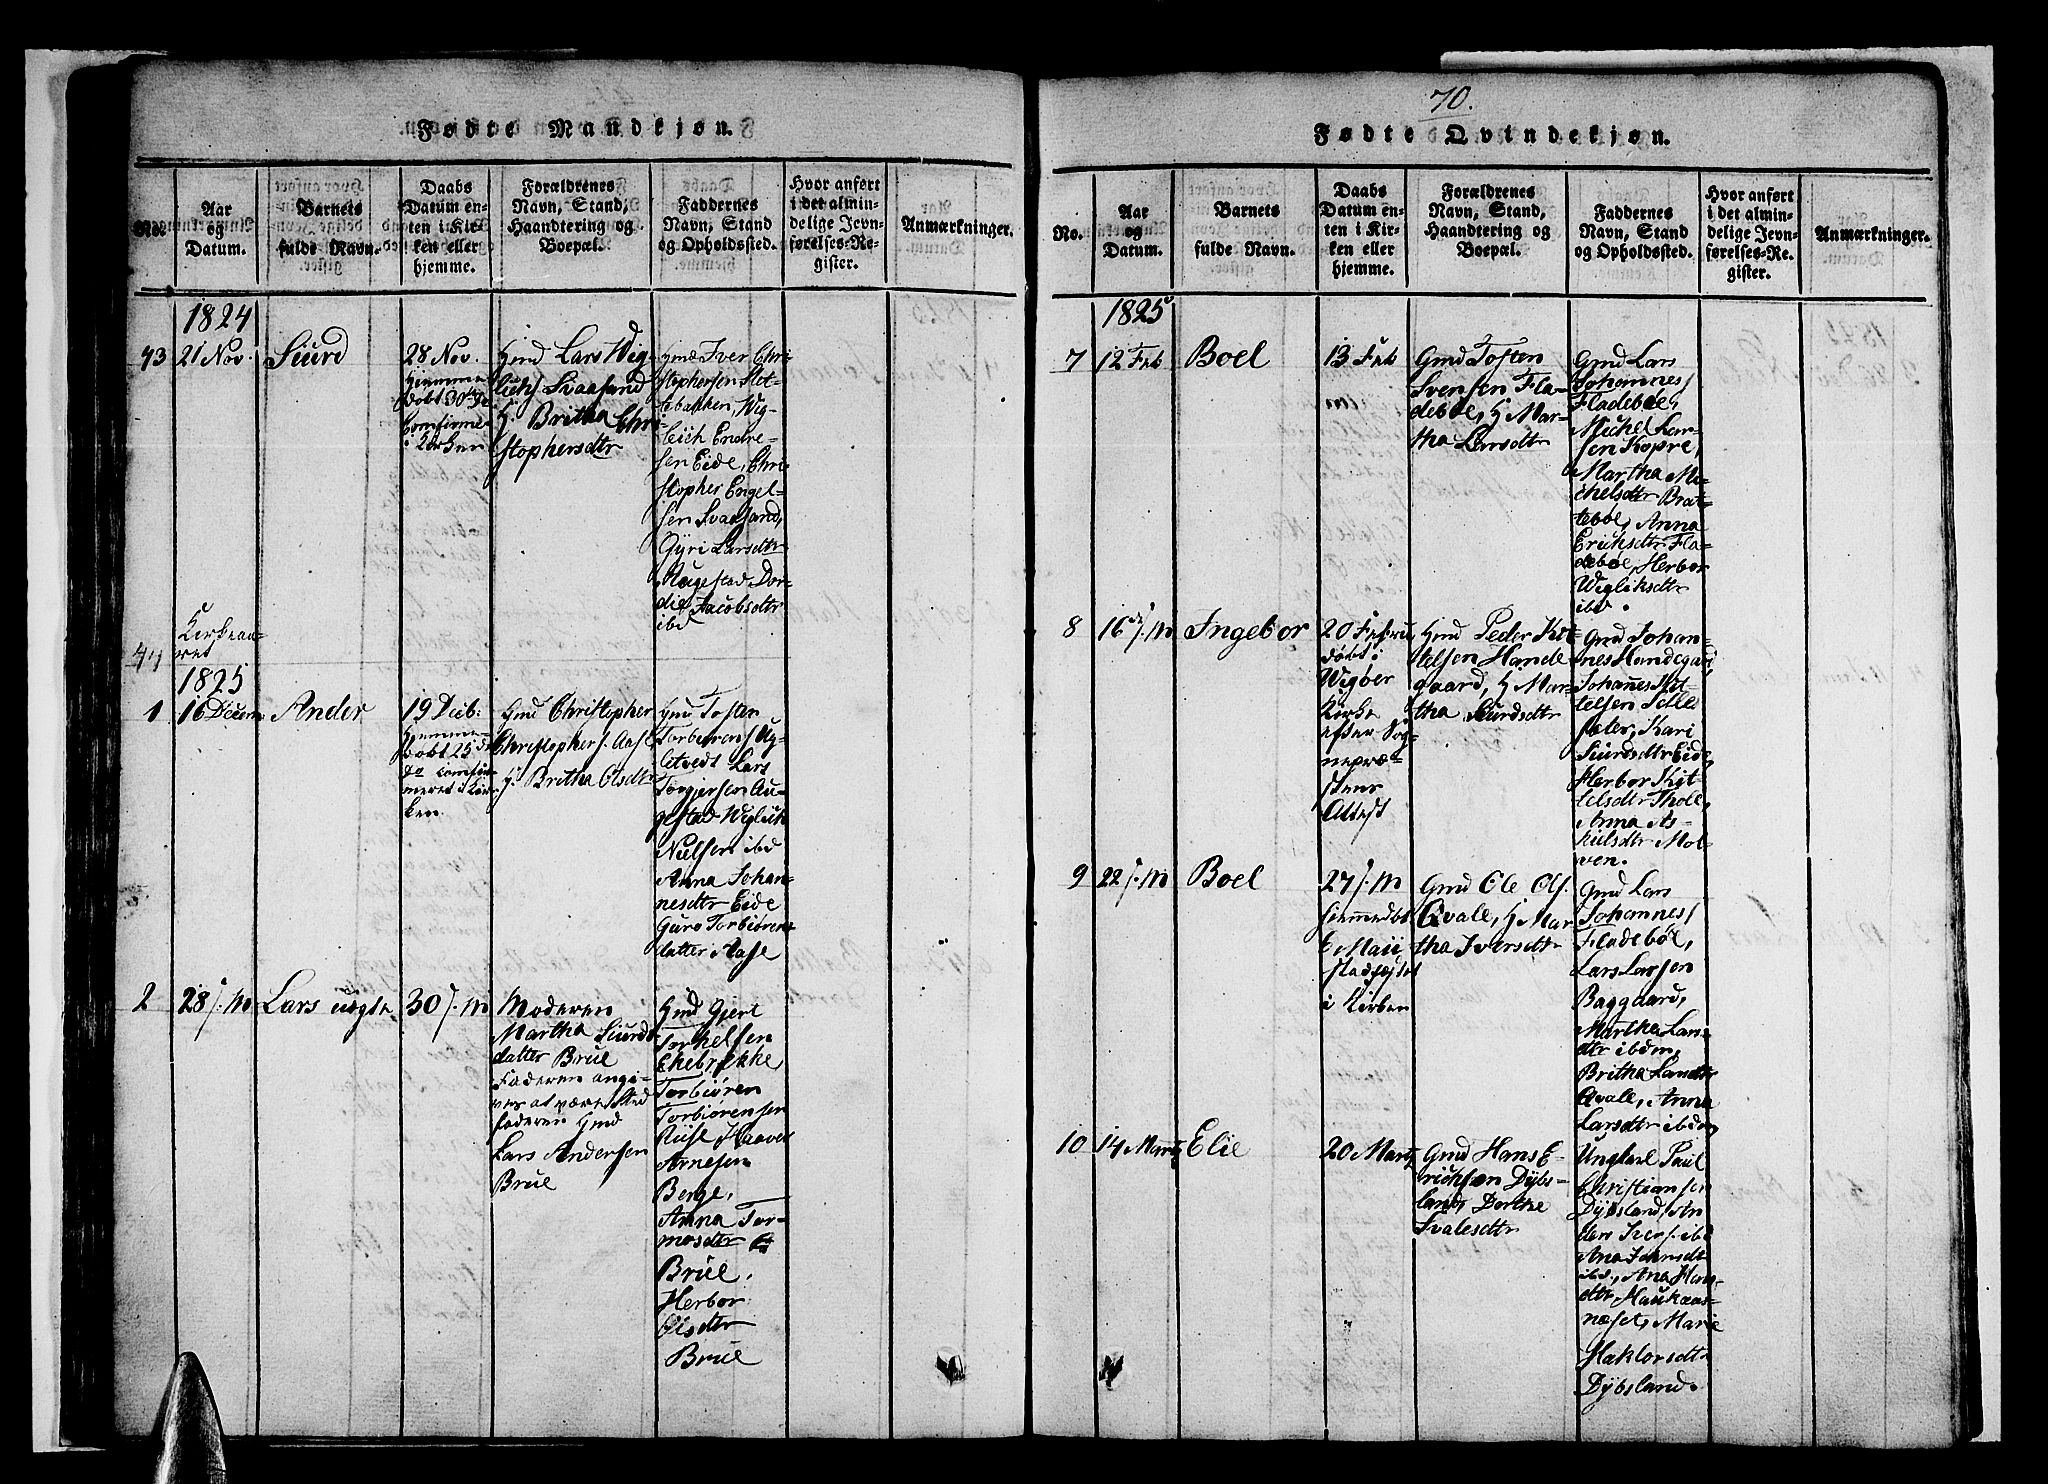 Fødte Mandkjøn.
No.
Aar
og
Datum.
Barnets
fulde Navn.
Daabs
Datum en-
ten i Kir-
ken eller
hjemme.
Forældrenes
Navn, Stand,
Haandtering og
Boepæl.
Faddernes
Navn, Stand
og Opholdssted.
Hvor anført
i det almin-
delige Jevn-
førelses-Re-
gister.
Anmærkninger.
1824
43
21 Nov.
Siurd
28 Nov.
hiemme
døbt 30de
Comfirme
i Kirken
Gmd Lars Wig-
lichs Svaasand
H. Britha Chri
stophersdtr
Gmd Iver Chri
stophersen Slet-
tebakken, Wig-
leich Endre-
sen Eide, Chri-
stopher Engel-
sen Svaasand,
Gyri Larsdtr
Rugestad Dor-
die Jacobsdtr
ibd
44
Kirkeaa-
ret
1825
1
16 Decem:
Ander
19 Decb:
hiemme
døbt 25de
comfir-
meret i Kir-
ken
Gmd Christopher
Christophers. Aase
H. Britha Olsdtr
Gmd Tosten
Torbiørens Ug-
letvedt Lars
Torgjersen Au-
gestad Wiglich
Nielsen ibd
Anna Johan-
nesdtr Eide
Guro Torbiørens
datter Aase
2
28 s. M
Lars uægte
30 s. M
Moderen
Martha Siurds
datter Brüe
Faderen angi-
ves at være Sted
faderen Gmd
Lars Andersen
Brüe
Gmd Gjert
Torkelsen
Ekebrekke
Torbiøren
Torbiørensen
Riise Haaver
Arnesen
Berge,
Anna Tor-
mosdtr
Brüe,
Herbor
Olsdtr
Brüe
70.
Fødte Qvindekjøn.
No.
Aar
og
Datum.
Barnets
fulde Navn.
Daabs
Datum en-
ten i Kir-
ken eller
hjemme.
Forældrenes
Navn, Stand,
Haandtering og
Boepæl.
Faddernes
Navn, Stand
og Opholdssted.
Hvor anført
i det almin-
delige Jevn-
førelses-Re-
gister.
Anmærkninger.
1825
7
12 Feb
Boel
13 Feb
Gmd Tosten
Svensen Fla-
deböe, H Mar-
tha Larsdtr
Gmd Lars
Johannes/
Fladeböe,
Michel Lar-
sen Kopre,
Martha Mi-
chelsdtr Brat-
teböe, Anna
Erichsdtr Fla-
deböe, Herbor
Wigliksdtr
ibd.
8
16 s. M
Ingebor
20 Febru
døbt i
Wigber
Kirke
efter Sog-
nepræ-
stens
Attest
Gmd Peder Kit-
telsen Hande
gaard, H Mar-
tha Siurdsdtr
Gmd Johan-
nes Handegaar,
Johanes Kit-
telsen
Kari
Siurdsdtr Eide,
Herbor Kit-
telsdtr Thole,
Anna As-
kielsdtr Mol-
ven.
9
22 s. M
Boel
27 s. M
hiemmedøbt
6 Maii
stadfæstet
i Kirken
Gmd Ole Ols.
Qvale, H Mar
tha Iversdtr
Gmd Lars
Johannes/
Fladeböe,
Lars Larsen
Baggaard,
Martha Lars-
dtr ibdm,
Britha Larsdtr
Qvale, Anna
Larsdtr ibdm
10
14 Marts
Elie
20 Marts
Gmd Hans E-
richsen Dybs-
land, Dorthe
Svalesdtr
Ungkarl Paul
Christiansen
Dybsland, An
ders Ivers. ibd
Ana Jensdtr
ibd., Ana Hans-
dtr Haukaas-
næset, Marie
Haklorsdtr
Dybsland.